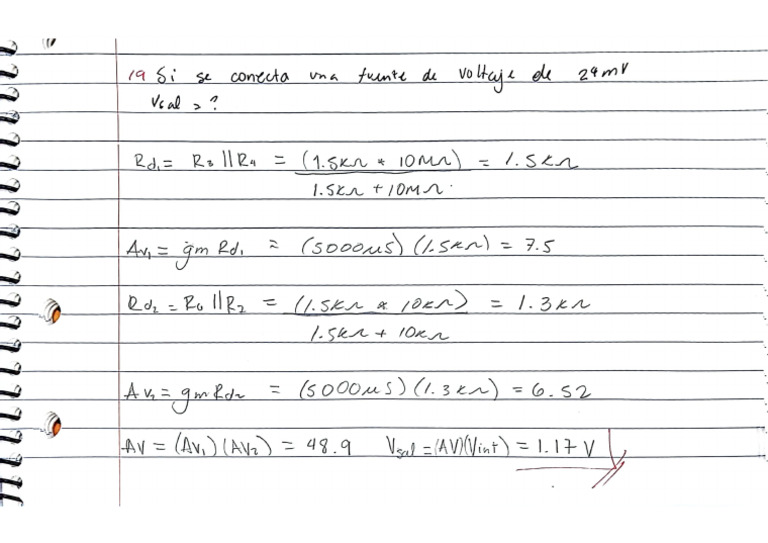 19 Si se conecta una fuente de voltaje de 24mV
Vsal = ?
Rd1 = R3 || R4 = (1.5KΩ * 10MΩ) = 1.5KΩ
1.5KΩ + 10MΩ
Av1 = gm Rd1 = (5000µS) (1.5KΩ) = 7.5
Rd2 = R6 || R7 = (1.5KΩ * 10KΩ) = 1.3KΩ
1.5KΩ + 10KΩ
Av2 = gm Rd2 = (5000µS) (1.3KΩ) = 6.52
AV = (AV1) (AV2) = 48.9 Vsal = (AV)(Vint) = 1.17 V